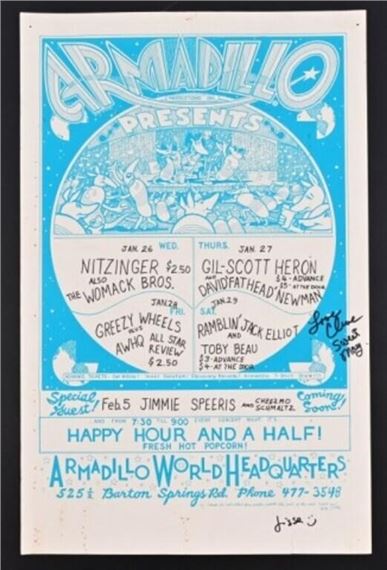 ARMADILLO
PRESENTS
JAN. 26 WED.
NITZINGER $2.50
ALSO
THE WOMACK BROS.
THURS. JAN. 27
GIL-SCOTT HERON
AND $4-ADVANCE
$5-AT THE DOOR
DAVID 'FATHEAD' NEWMAN
JAN. 28 FRI.
GREEZY WHEELS
PLUS
AWHQ ALL STAR
REVIEW
$2.50
JAN. 29 SAT.
RAMBLIN' JACK ELLIOT
AND
TOBY BEAU
$3-ADVANCE
$4-AT THE DOOR
Special Guest!
Feb 5 JIMMIE SPEERIS AND CHEEZMO SCHMALTZ
Coming Soon!
AND FROM 7:30 TILL 9:00 EVERY CONCERT NIGHT IT'S
HAPPY HOUR AND A HALF!
FRESH HOT POPCORN!
ARMADILLO WORLD HEADQUARTERS
525 ½ Barton Springs Rd. Phone 477-3548